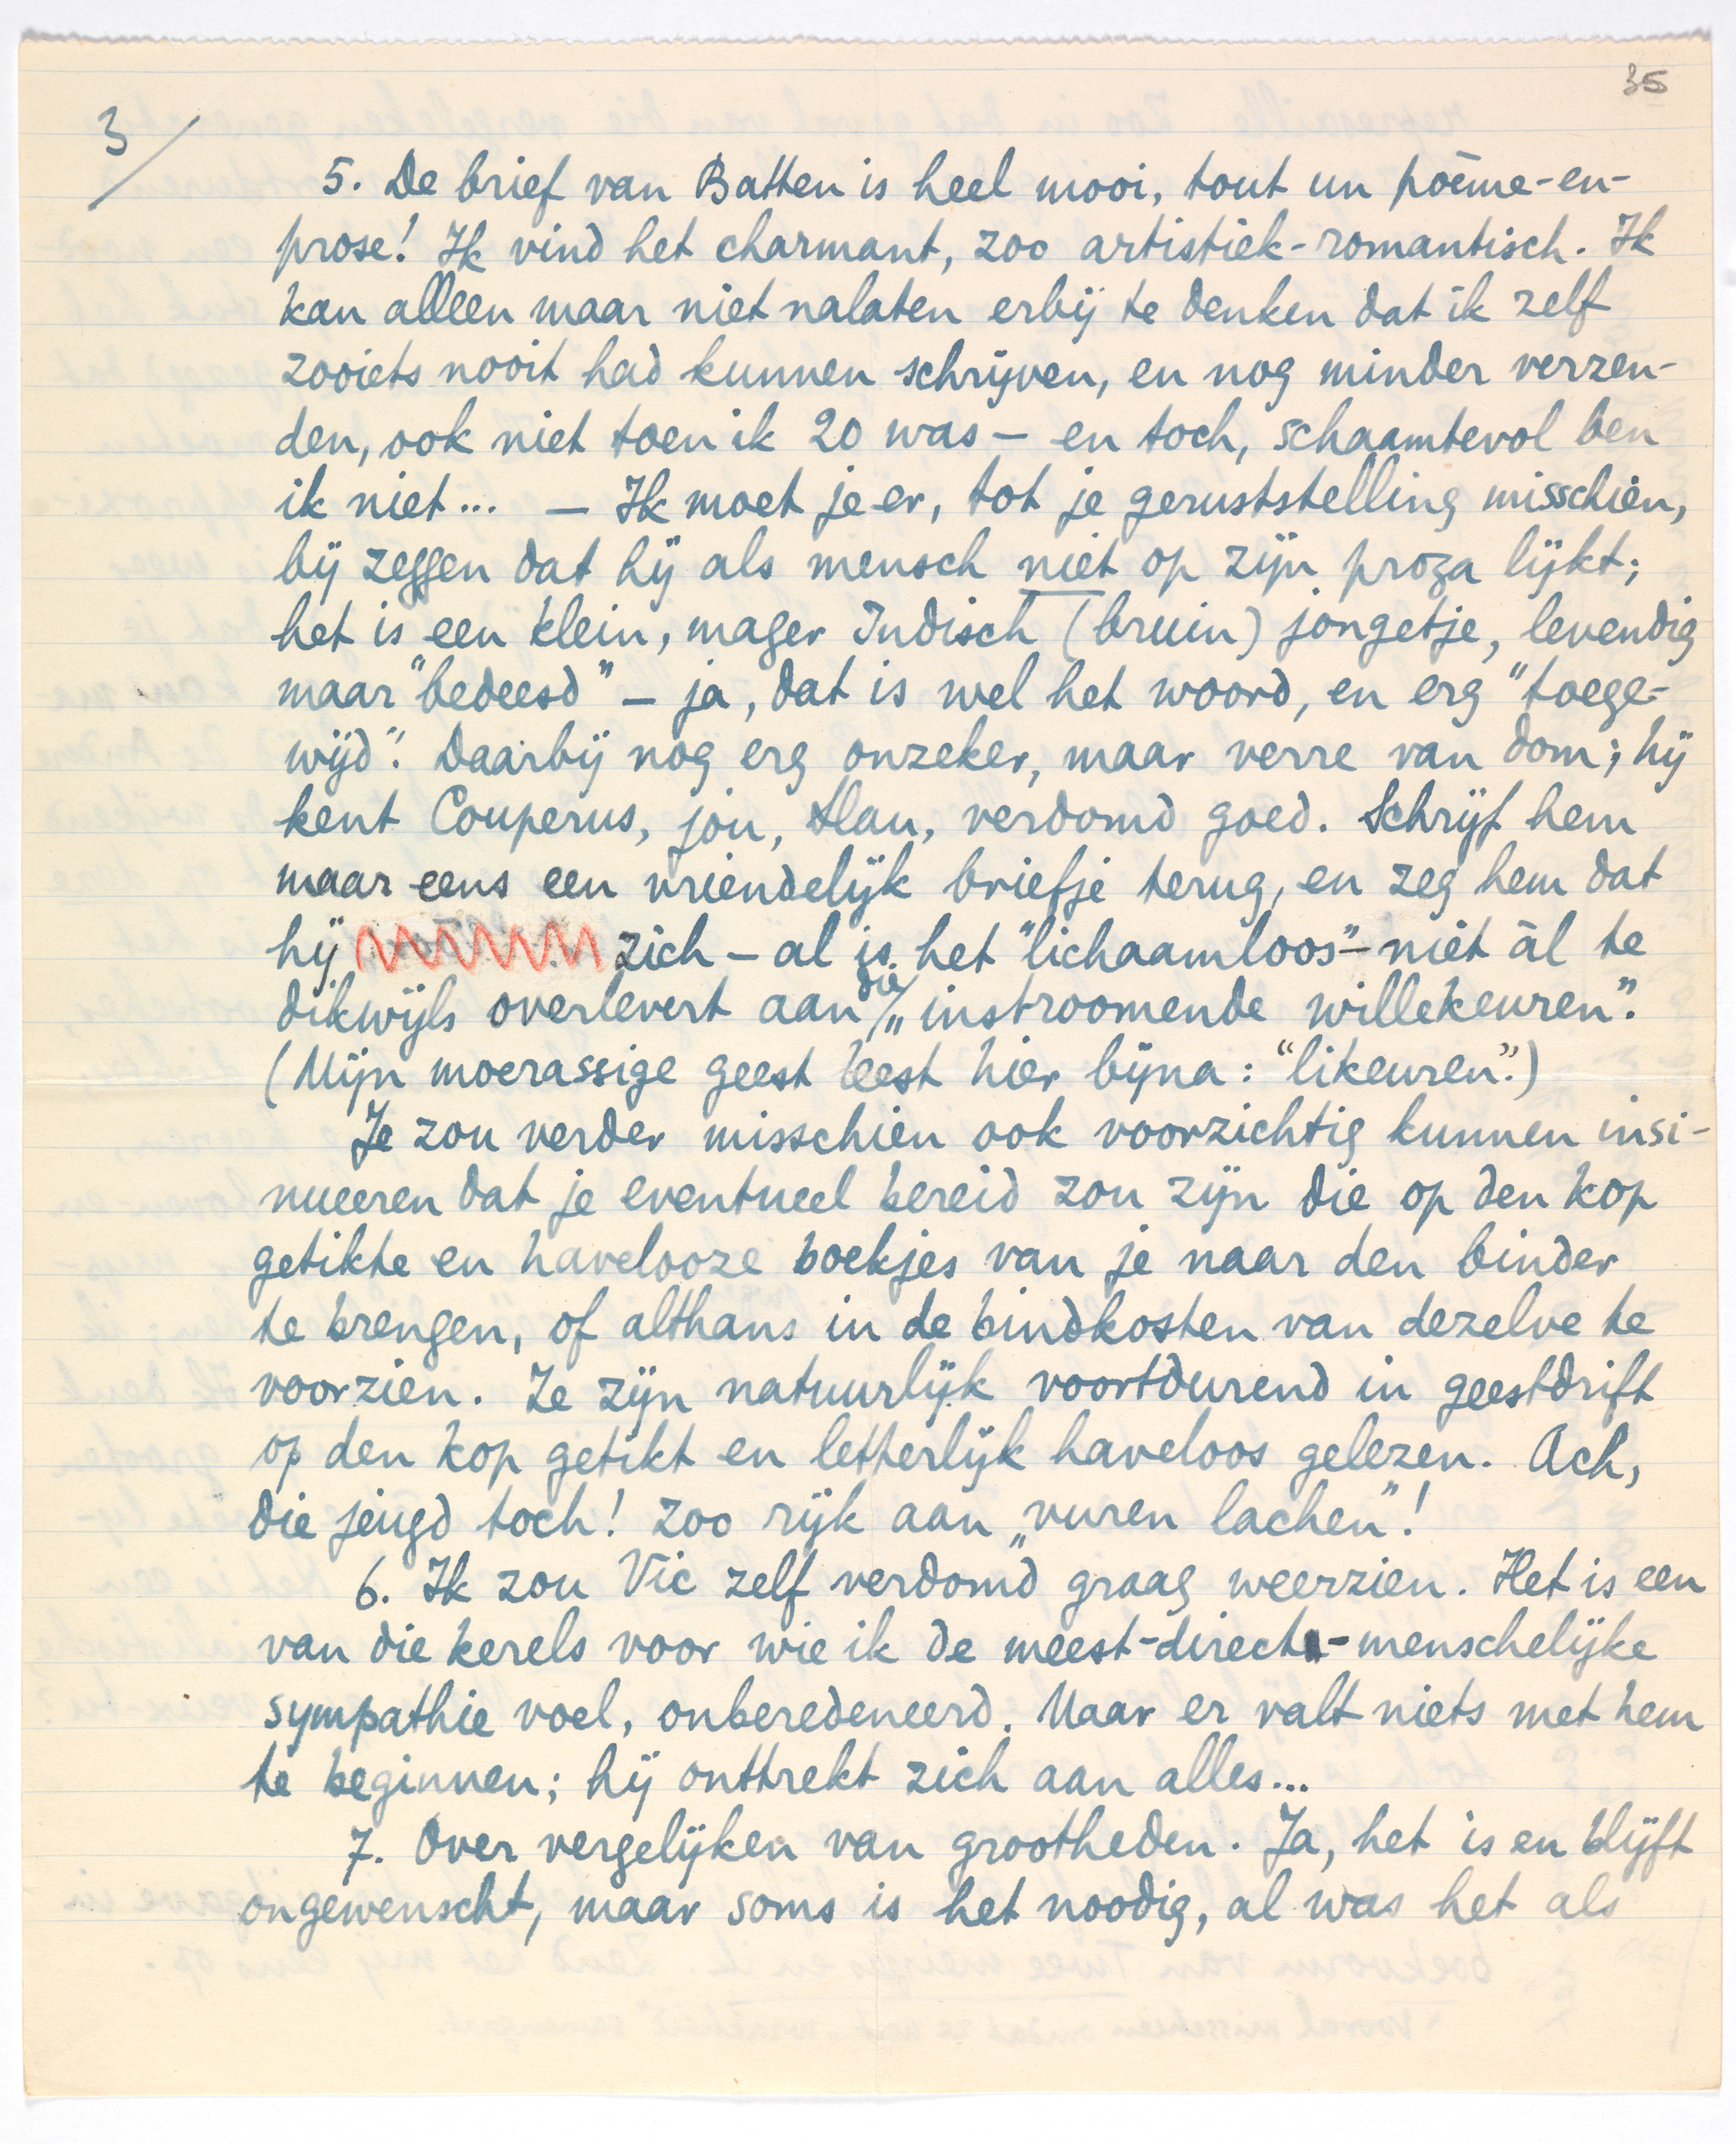 35
3/
5. De brief van Batten is heel mooi, tout un poème-en-
prose! Ik vind het charmant, zoo artistiek-romantisch. Ik
kan alleen maar niet nalaten erbij te denken dat ik zelf
zooiets nooit had kunnen schrijven, en nog minder verzen-
den, ook niet toen ik 20 was — en toch, schaamtevol ben
ik niet... — Ik moet je er, tot je geruststelling misschien,
bij zeggen dat hij als mensch niet op zijn proza lijkt;
het is een klein, mager Indisch (bruin) jongetje, levendig
maar "bedeesd" — ja, dat is wel het woord, en erg "toege-
wijd". Daarbij nog erg onzeker, maar verre van dom; hij
kent Couperus, jou, Slau, verdomd goed. Schrijf hem
maar eens een vriendelijk briefje terug, en zeg hem dat
hij zich — al is het "lichaamloos" — niet àl te
dikwijls overlevert aan die „instroomende willekeuren".
(Mijn moerassige geest leest hier bijna: "likeuren".)
Je zou verder misschien ook voorzichtig kunnen insi-
nueeren dat je eventueel bereid zou zijn die op den kop
getikte en havelooze boekjes van je naar den binder
te brengen, of althans in de bindkosten van dezelve te
voorzien. Ze zijn natuurlijk voortdurend in geestdrift
op den kop getikt en letterlijk haveloos gelezen. Ach,
die jeugd toch! Zoo rijk aan „vuren lachen"!
6. Ik zou Vic zelf verdomd graag weerzien. Het is een
van die kerels voor wie ik de meest-direct-menschelijke
sympathie voel, onberedeneerd. Maar er valt niets met hem
te beginnen; hij onttrekt zich aan alles...
7. Over vergelijken van grootheden. Ja, het is en blijft
ongewenscht, maar soms is het noodig, al was het als